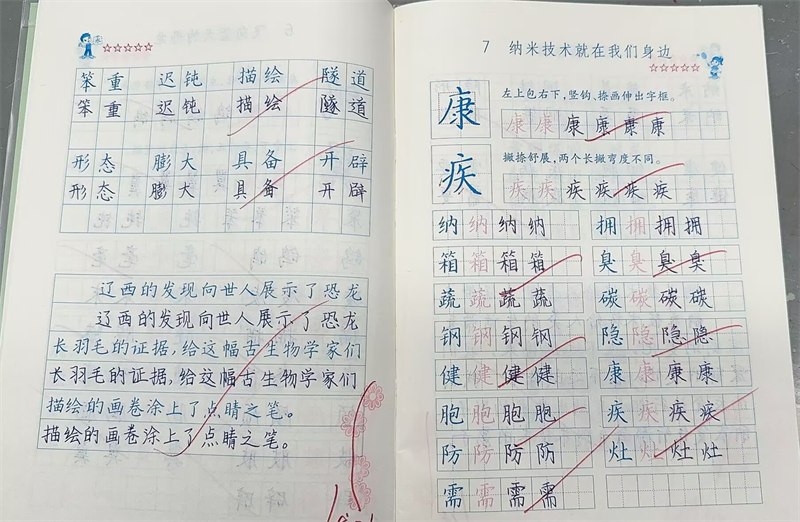 笨重 迟钝 描绘 隧道
笨重 迟钝 描绘 隧道
形态 膨大 具备 开辟
形态 膨大 具备 开辟
辽西的发现向世人展示了恐龙
辽西的发现向世人展示了恐龙
长羽毛的证据,给这幅古生物学家们
长羽毛的证据,给这幅古生物学家们
描绘的画卷涂上了点睛之笔。
描绘的画卷涂上了点睛之笔。
7 纳米技术就在我们身边
康 左上包右下,竖钩、捺画伸出字框。
康康康康康康
疾 撇捺舒展,两个长撇弯度不同。
疾疾疾疾疾疾
纳纳纳纳 拥拥拥拥
箱箱箱箱 臭臭臭臭
蔬蔬蔬蔬 碳碳碳碳
钢钢钢钢 隐隐隐隐
健健健健 康康康康
胞胞胞胞 疾疾疾疾
防防防防 灶灶灶灶
需需需需